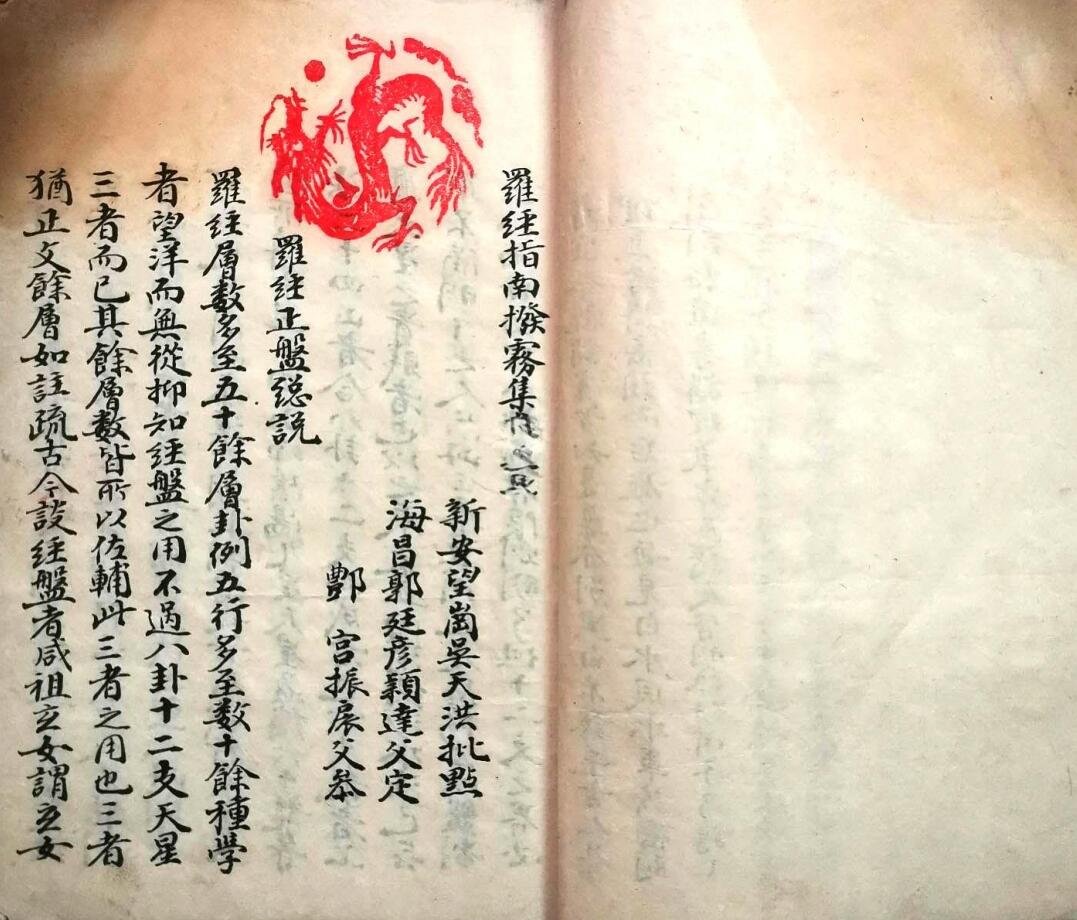 羅經指南撥霧集卷之一
新安望崗吳天洪批點
海昌郭廷彥穎達父定
酆宮振宸父叅
羅經正盤總說
羅經層數多至五十餘層卦例五行多至数十餘種學
者望洋而無從抑知經盤之用不過八卦十二支天星
三者而已其餘層數皆所以佐輔此三者之用也三者
猶正文餘層如註疏古今設經盤者咸祖玄女謂玄女